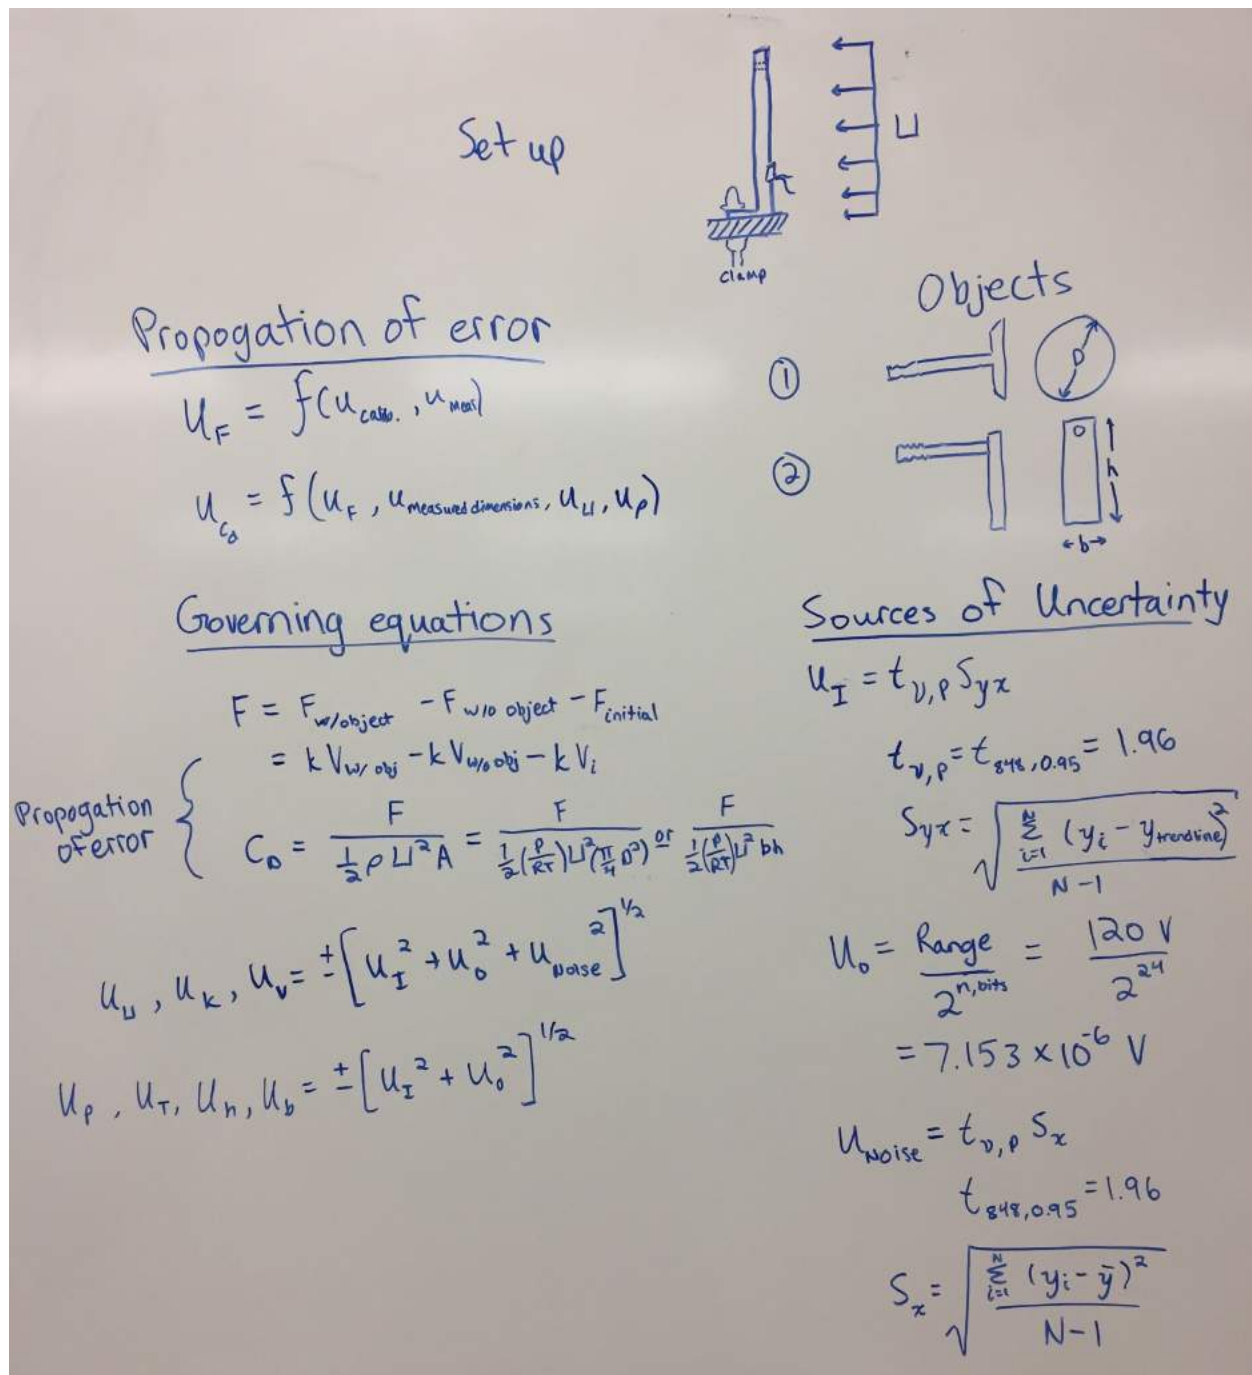 Set up
U
clamp
Propogation of error
U_F = f(u_calib., u_meas)
U_{C_D} = f(u_F, u_measured dimensions, u_U, u_P)
Objects
① D
② h
←b→
Governing equations
F = F_w/object - F_w/o object - F_initial
= kV_w/ obj - kV_w/o obj - kV_i
Propogation of error
C_D = F / (½ρU²A) = F / (½(P/RT)U²(π/4 D²)) or F / (½(P/RT)U² bh)
u_U, u_k, u_v = ±[u_I² + u_0² + u_Noise²]^1/2
u_P, u_T, u_h, u_b = ±[u_I² + u_0²]^1/2
Sources of Uncertainty
u_I = t_ν,P S_yx
t_ν,P = t_848,0.95 = 1.96
S_yx = √(Σ_{i=1}^{N} (y_i - y_trendline)² / N-1)
U_0 = Range / 2^n,bits = 120 V / 2^24
= 7.153 × 10^-6 V
U_Noise = t_ν,P S_x
t_848,0.95 = 1.96
S_x = √(Σ_{i=1}^{N} (y_i - ȳ)² / N-1)